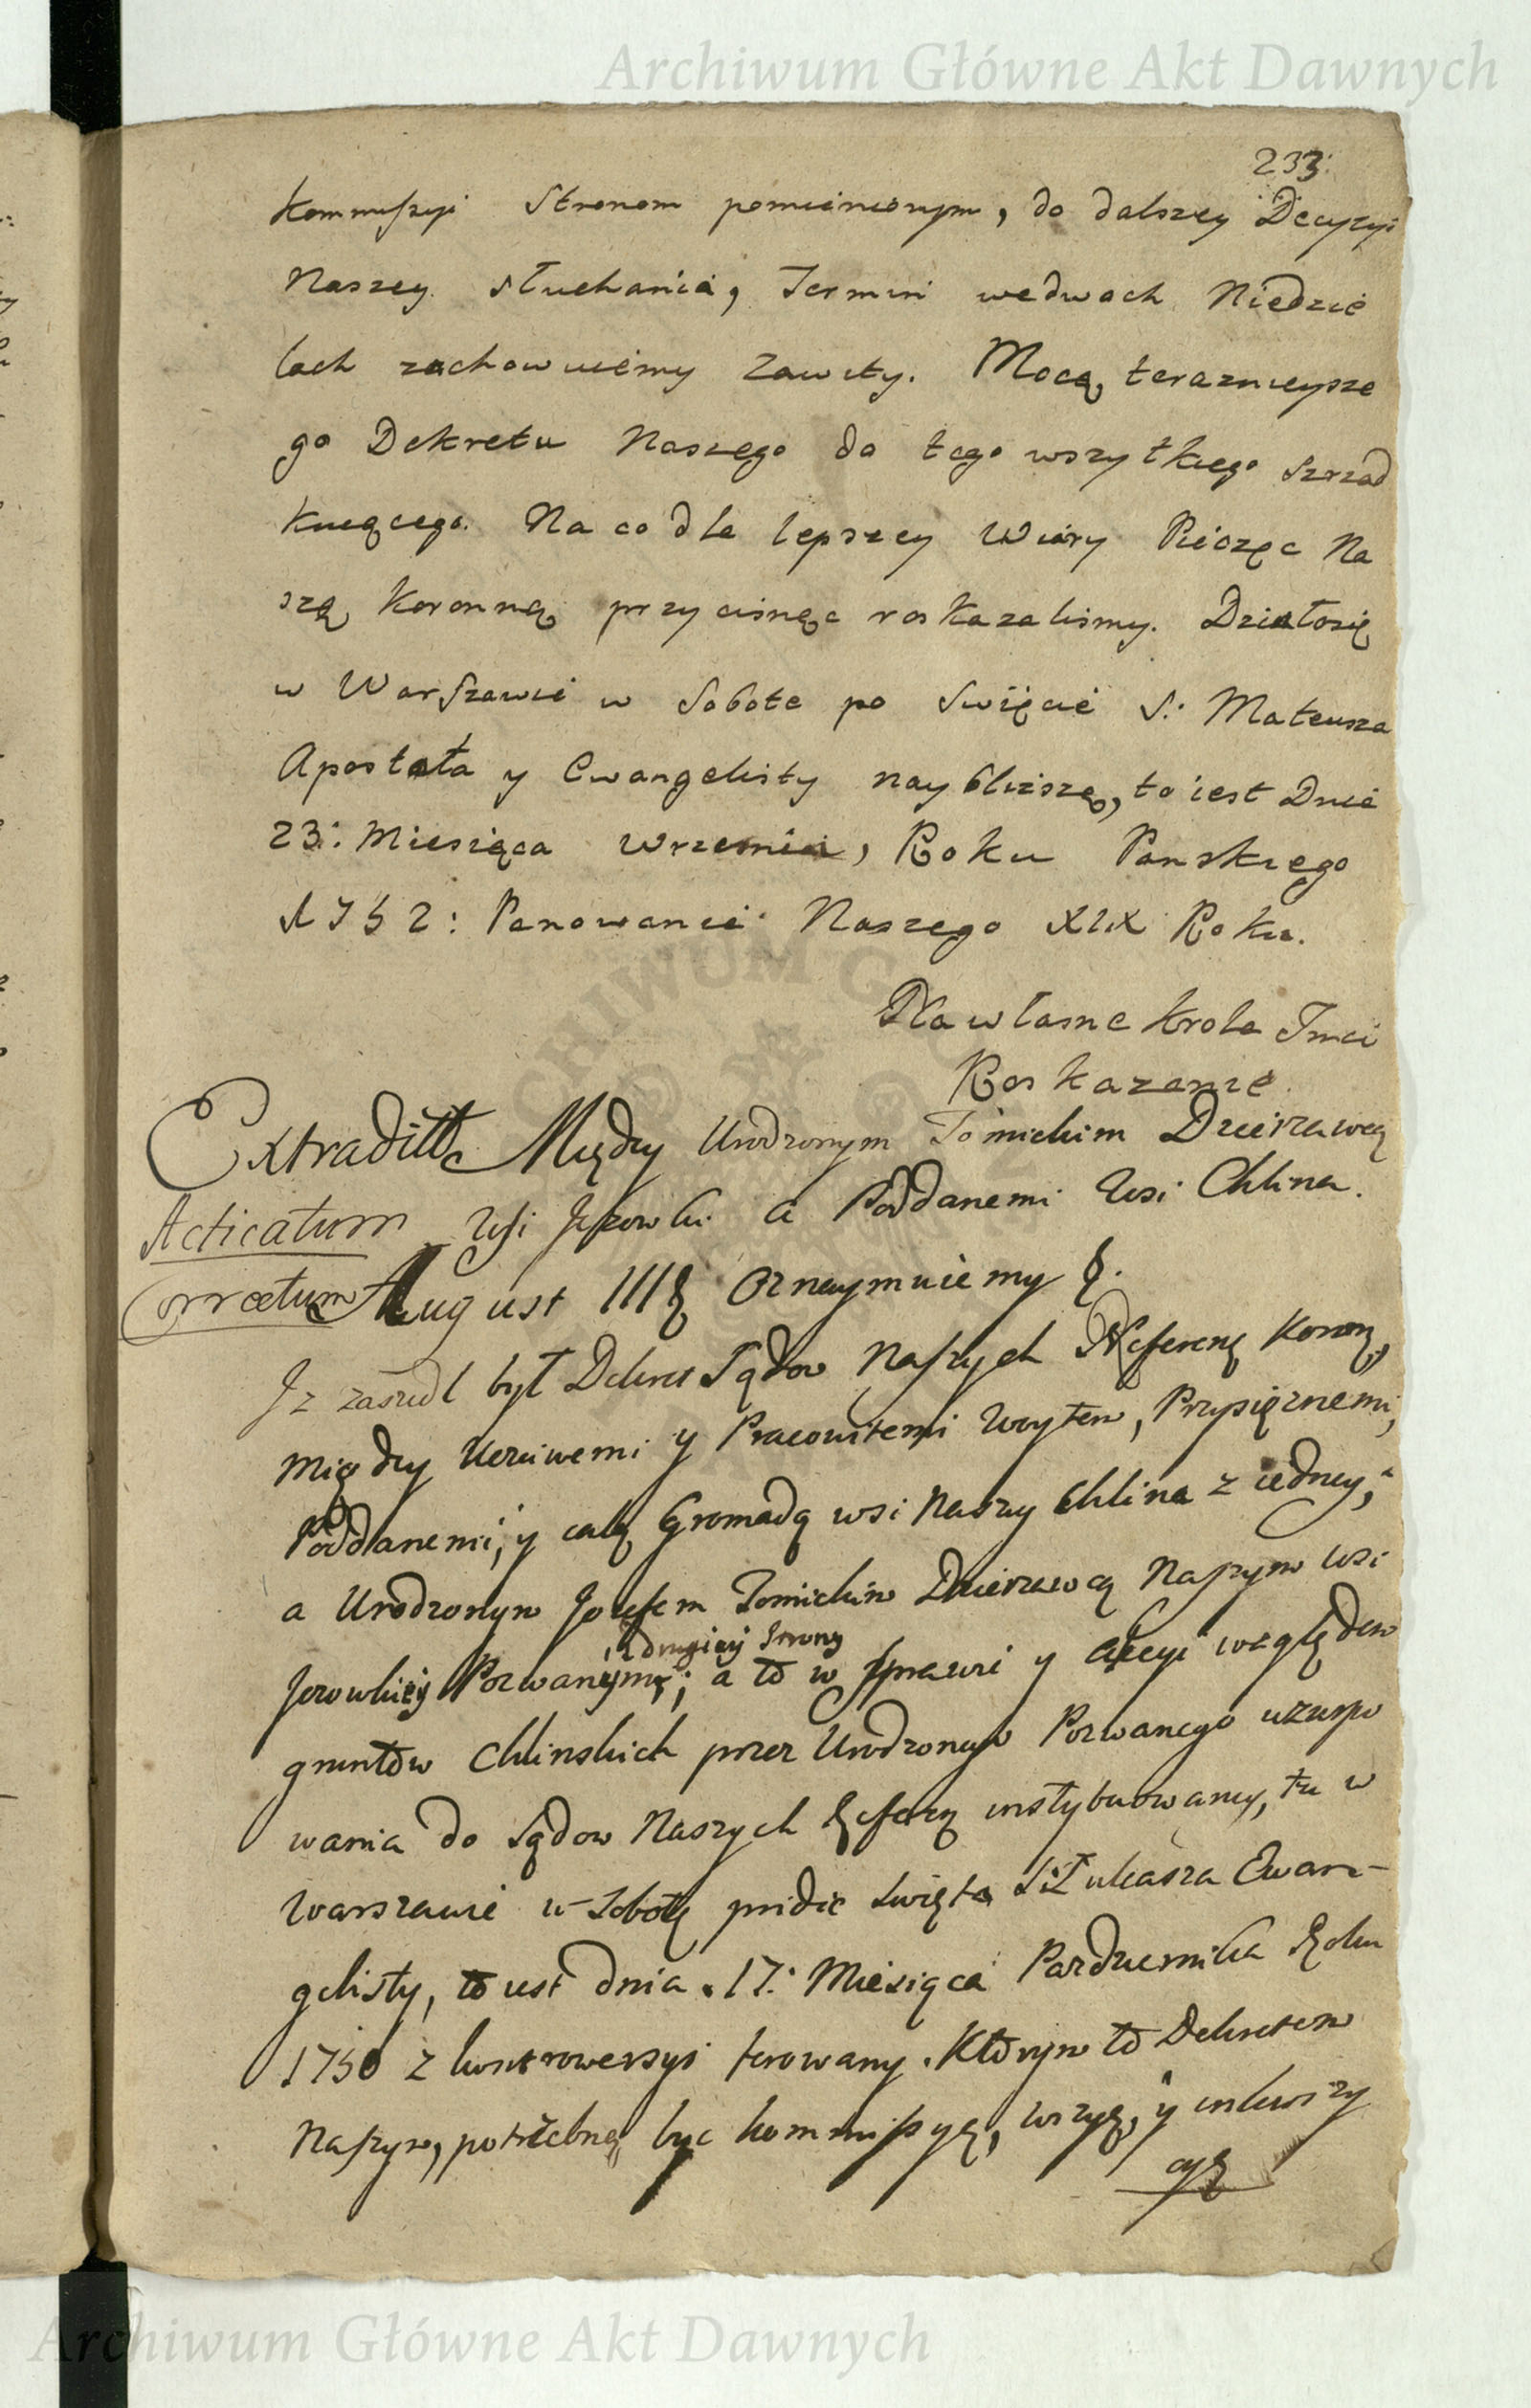 Archiwum Główne Akt Dawnych
233
Kommissyi Stronom pomienionym, do dalszey Decyzyi
Naszey słuchania, Termin wedwoch Niedzie
lach zachowuiemy Zawity. Mocą teraznieysze
go Dekretu Naszego do tego wszytkiego
Na co dla lepszey Wiary Pieczęc Na
szą Koronną przycisnąc roskazalismy. Działosię
w Warszawie w Sobote po Swięcie S. Mateusza
Apostoła y Ewangelisty naybliższą, to iest Dnia
23: Miesiąca Wrzesnia, Roku Panskiego
1752: Panowania Naszego XIX Roku.
Na własne Krola Jmci
Roskazanie
Extraditt Między Urodzonym Tomickim Dzierzawcą
Acticatum Wsi Jezowki a Poddanemi Wsi Chlina.
Correctum August III Oznaymuiemy
Jz zaszedł był Dekret Sądow Naszych Referen Koron,
między Uczciwemi y Pracowitemi Woytem, Przysięznemi,
Poddanemi, y całą Gromadą wsi Naszy Chlina z iedney,
a Urodzonym Jozefem Tomickim Dzierzawcą Naszym wsi
z drugiey strony
Jezowki Pozwanym; a to w sprawie y akcyi względem
gruntow Chlinskich przez Urodzonego Pozwanego uzurpo
wania do Sądow Naszych Referen instytuowaney, tu w
Warszawie w Sobotę pridie Swięta S. Łukasza Ewan-
gelisty, to iest dnia 17. Miesiąca Pazdziernika Roku
1750 z kontrowersyi ferowany. Ktorym to Dekretem
Naszym, potrzebną byc kommissyą, wizyą, y inkwizy
cyą
Archiwum Główne Akt Dawnych